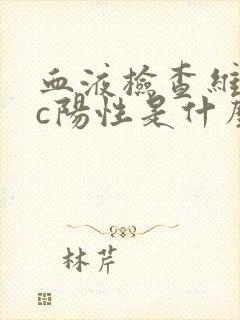 血液檢查維
c陽性是什麼
林芹